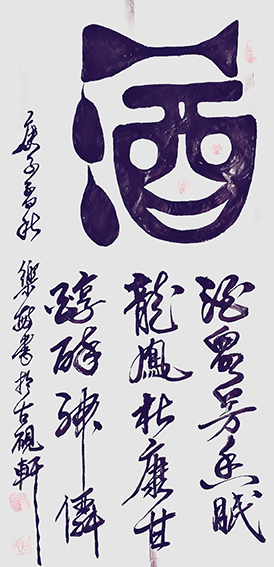 酒
酒芳香眠
龍鳳杜康甘
醇醉神僊
庚子秋
樂安書於古硯軒